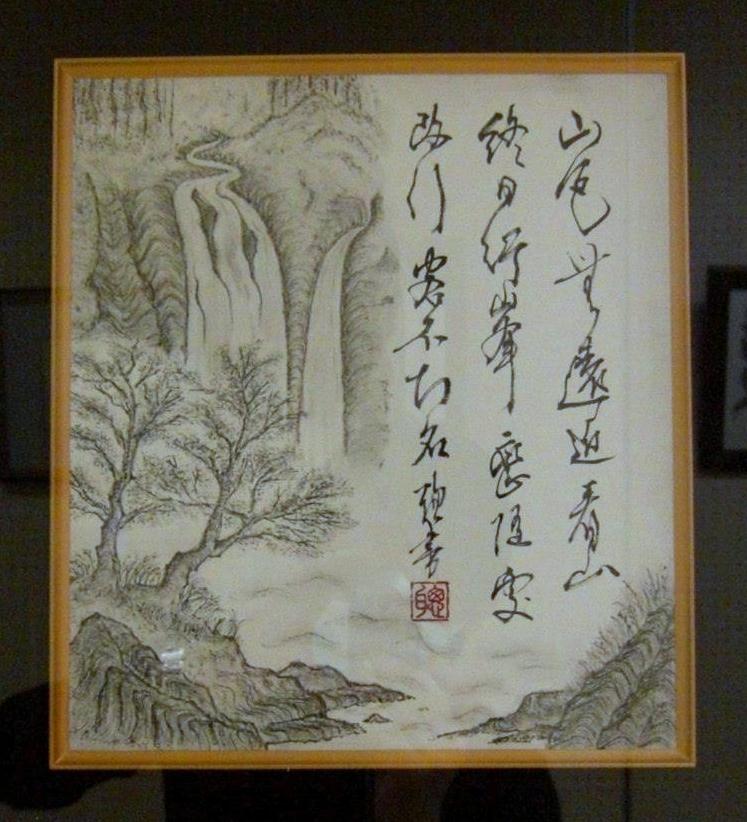 山色無遠近看山
終日行峯巒隨處
改行客不知名聰書
聰